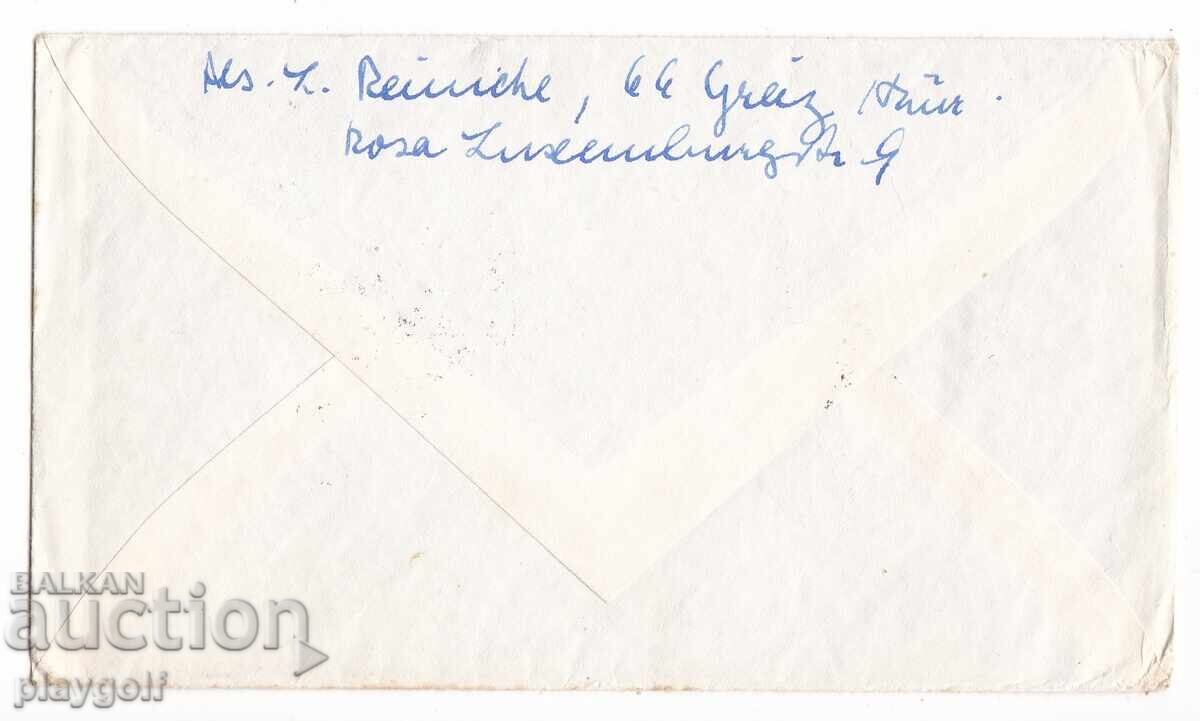 Abs. L. Reinicke, 66 Greiz Thür.
Rosa Luxemburgstr 9
BALKAN
auction
playgolf